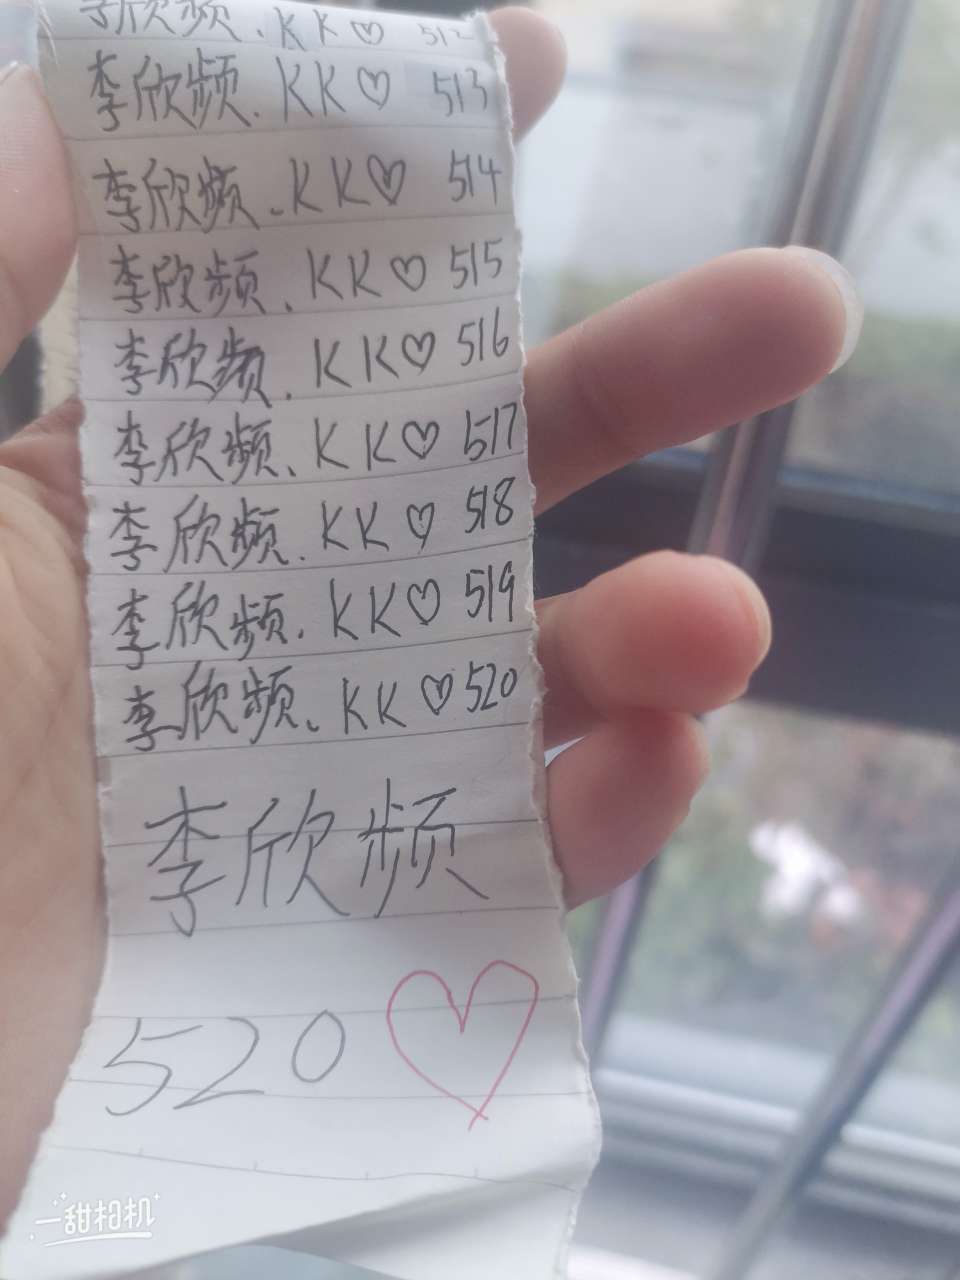 李欣频.KK♡ 512
李欣频.KK♡ 513
李欣频.KK♡ 514
李欣频.KK♡ 515
李欣频.KK♡ 516
李欣频.KK♡ 517
李欣频.KK♡ 518
李欣频.KK♡ 519
李欣频.KK♡ 520
李欣频
520♡
一甜相机